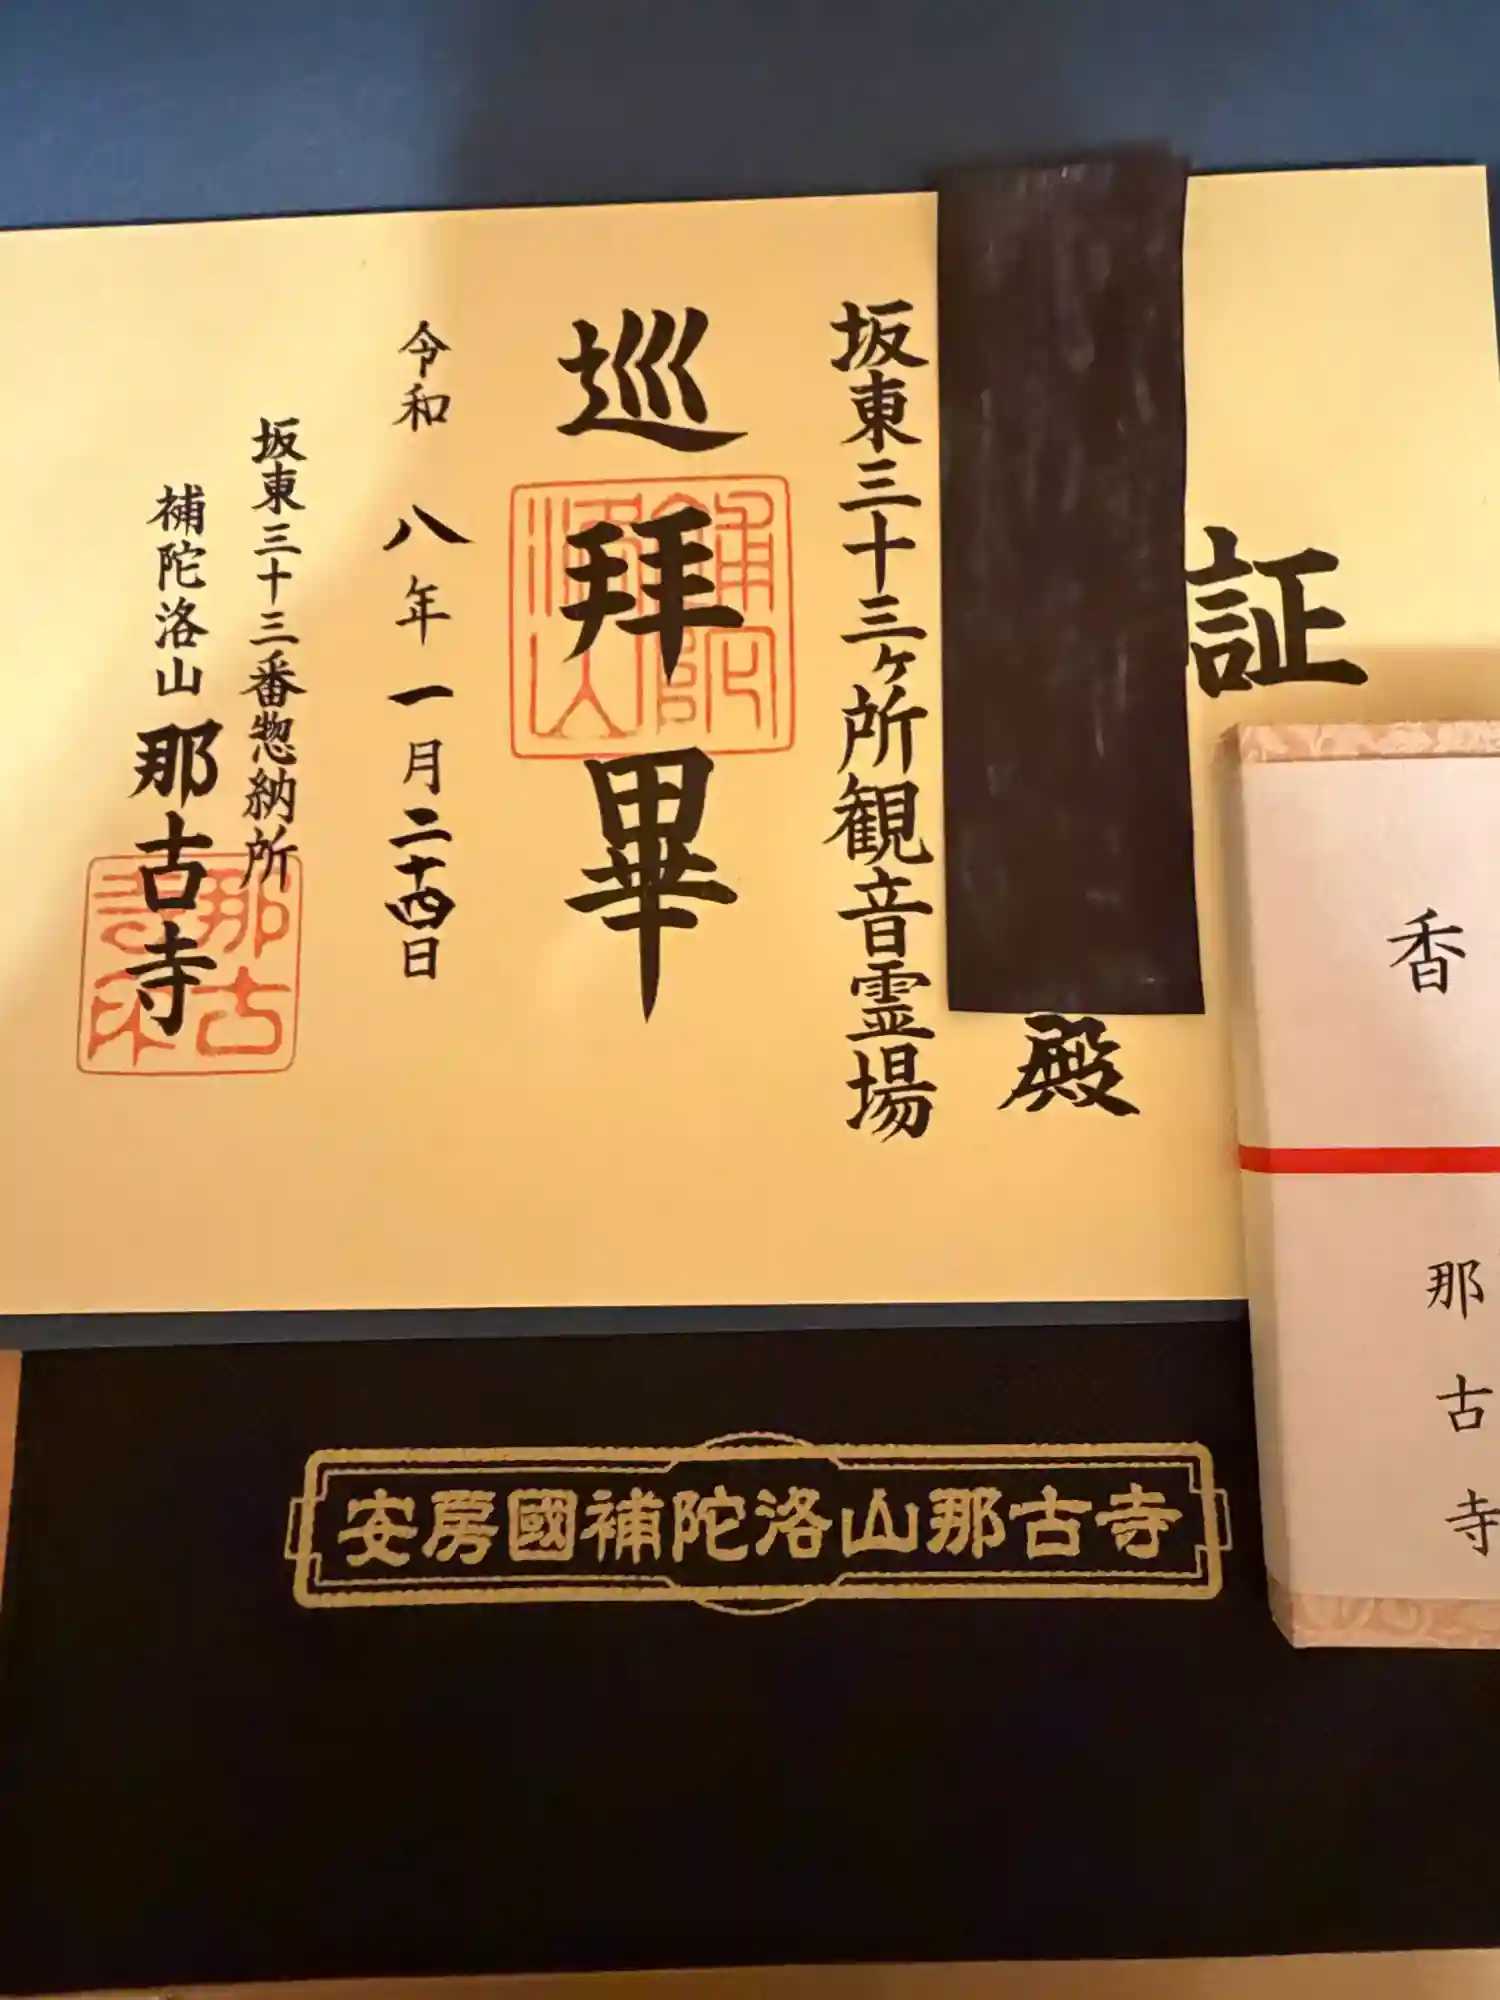 証
殿
坂東三十三ヶ所観音霊場
巡拝畢
令和八年一月二十四日
坂東三十三番惣納所
補陀洛山那古寺
補陀洛山
那古寺印
香
那古寺
安房國補陀洛山那古寺